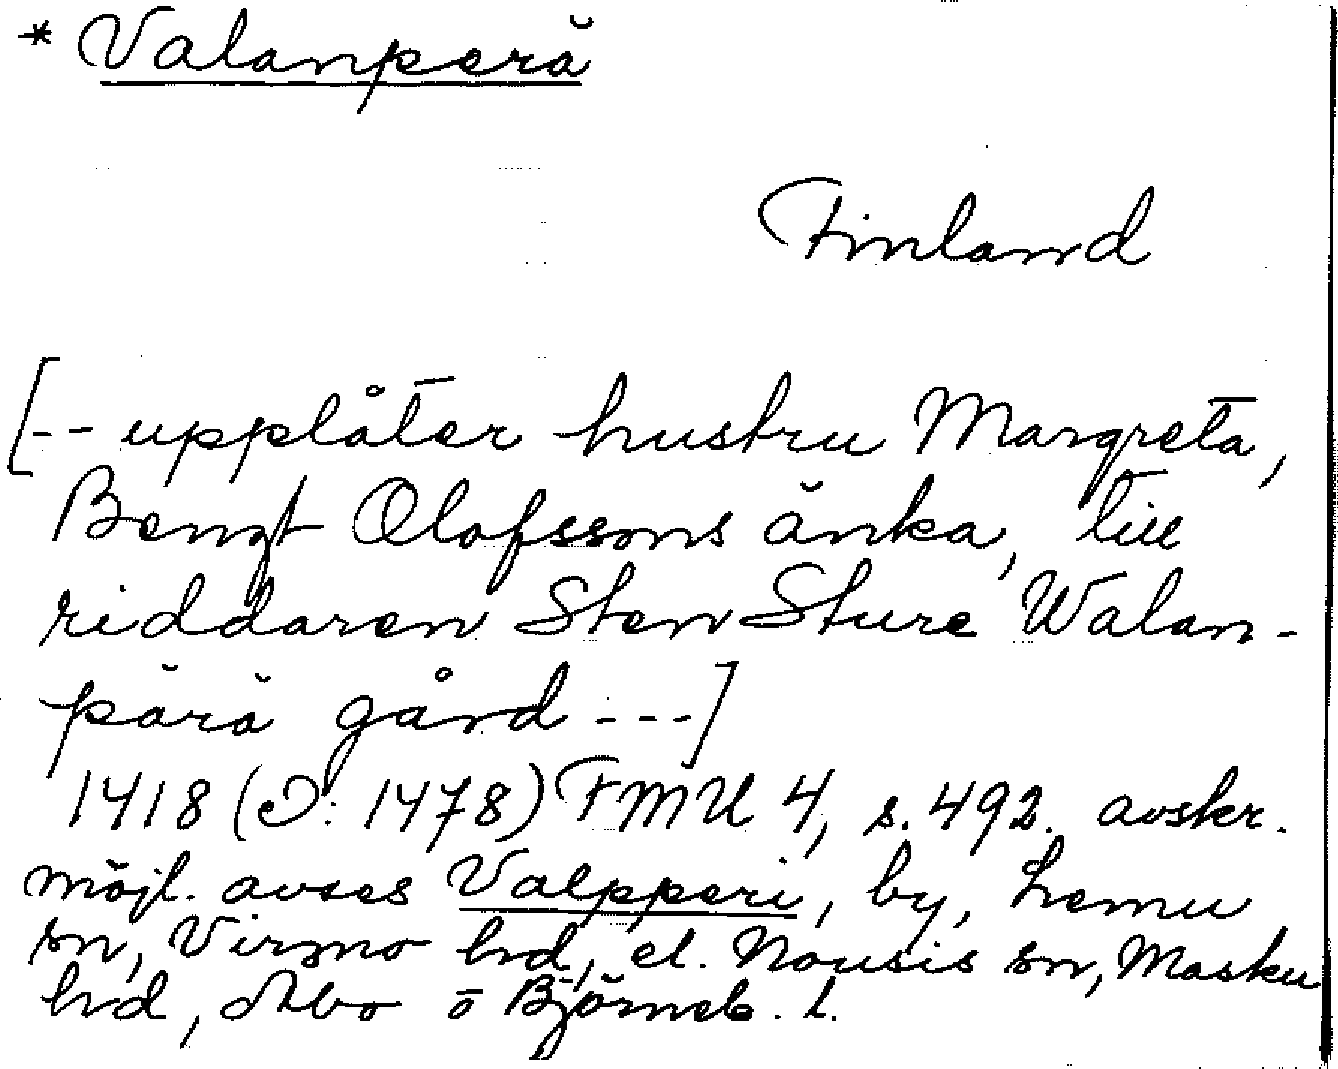 * Valanperä
Finland
[-- upplåter hustru Margreta,
Bengt Olofssons änka, till
riddaren Sten Sture Walan-
pärä gård ---]
1418 (ɔ: 1478) FMU 4, s. 492. avskr.
möjl. avses Valpperi, by, Lemu
sn, Virmo hd, el. Nousis sn, Masku
hd, Åbo o Björneb. l.